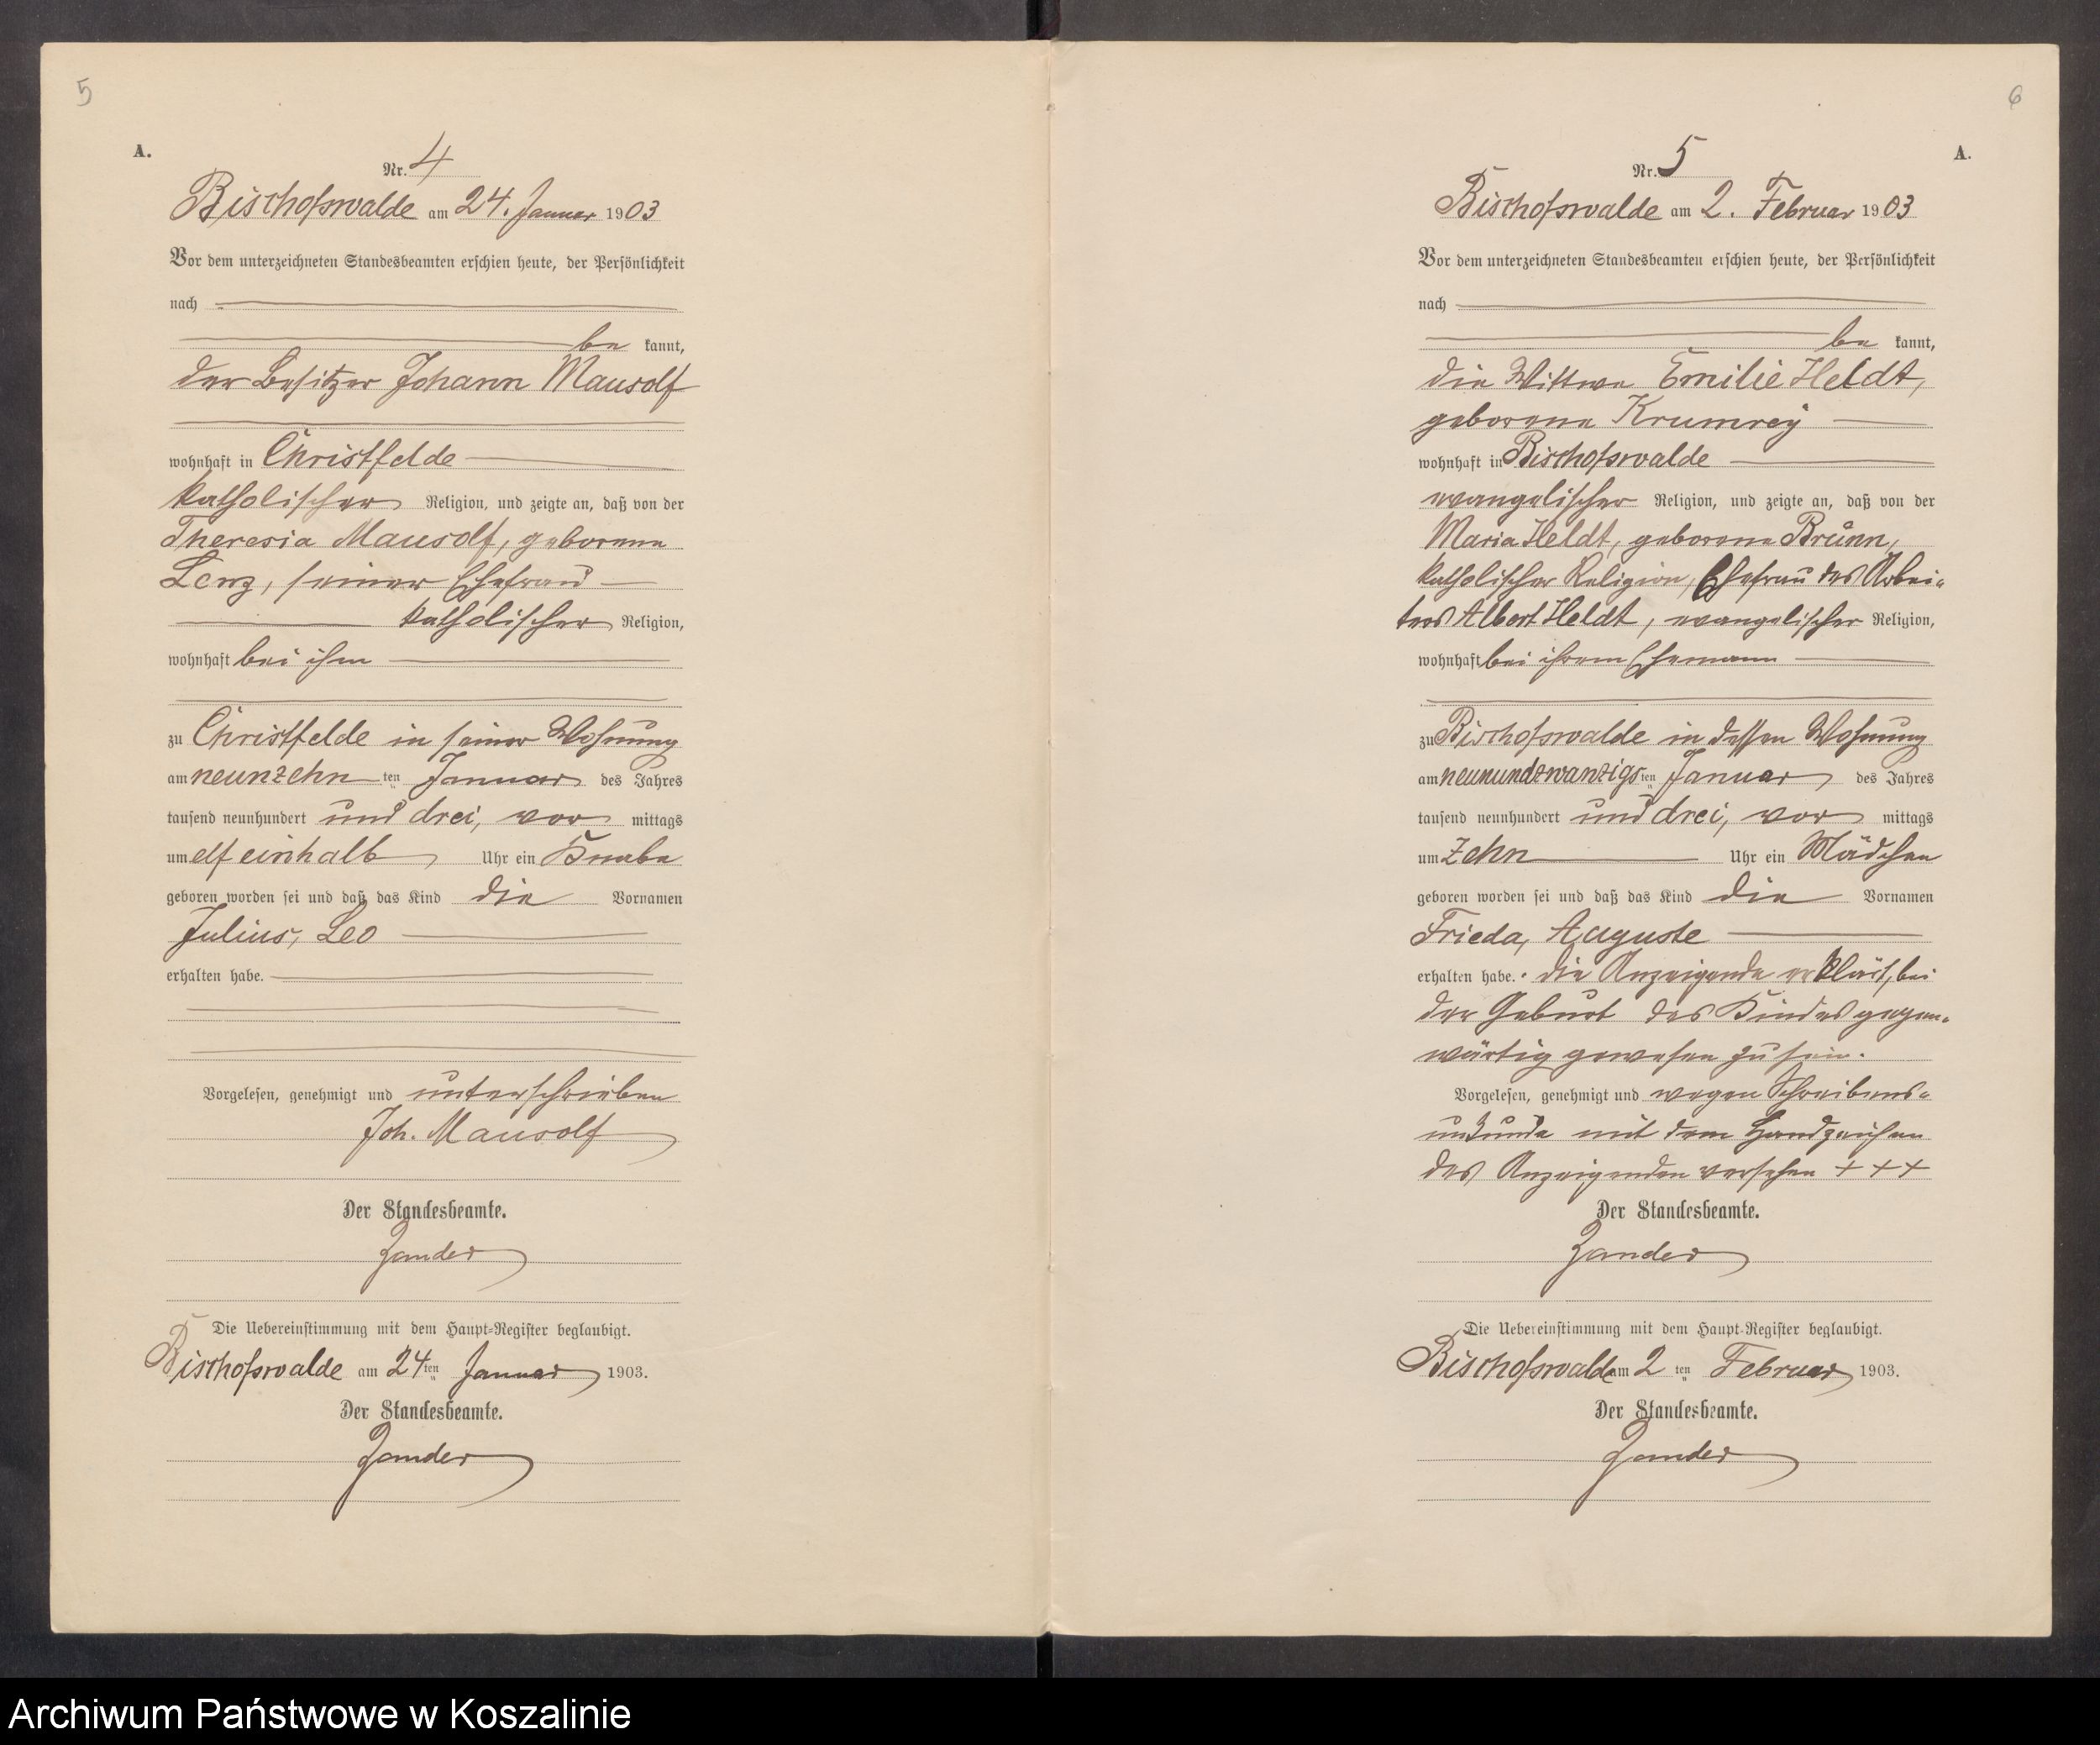 5
A.
Nr. 4
Bischofswalde am 24. Januar 1903
Vor dem unterzeichneten Standesbeamten erschien heute, der Persönlichkeit
nach
be kannt,
der Besitzer Johann Mausolf
wohnhaft in Christfelde
katholischer Religion, und zeigte an, daß von der
Theresia Mausolf, geborene
Lenz, seiner Ehefrau
katholischer Religion,
wohnhaft bei ihm
zu Christfelde in seiner Wohnung
am neunzehn ten Januar des Jahres
tausend neunhundert und drei, vor mittags
um elf einhalb Uhr ein Knabe
geboren worden sei und daß das Kind die Vornamen
Julius, Leo
erhalten habe.
Vorgelesen, genehmigt und unterschrieben
Joh. Mausolf
Der Standesbeamte.
Zander
Die Uebereinstimmung mit dem Haupt-Register beglaubigt.
Bischofswalde am 24ten Januar 1903.
Der Standesbeamte.
Zander
6
A.
Nr. 5
Bischofswalde am 2. Februar 1903
Vor dem unterzeichneten Standesbeamten erschien heute, der Persönlichkeit
nach
be kannt,
die Wittwe Emilie Heldt,
geborene Krumrey
wohnhaft in Bischofswalde
evangelischer Religion, und zeigte an, daß von der
Maria Heldt, geborene Brünn,
katholischer Religion, Ehefrau des Arbei-
ters Albert Heldt, evangelischer Religion,
wohnhaft bei ihrem Ehemann
zu Bischofswalde in dessen Wohnung
am neunundzwanzigs ten Januar des Jahres
tausend neunhundert und drei, vor mittags
um zehn Uhr ein Mädchen
geboren worden sei und daß das Kind die Vornamen
Frieda, Auguste
erhalten habe. Die Anzeigende erklärt, bei
der Geburt des Kindes gegen-
wärtig gewesen zu sein.
Vorgelesen, genehmigt und wegen Schreibens-
unkunde mit dem Handzeichen
des Anzeigenden versehen + + +
Der Standesbeamte.
Zander
Die Uebereinstimmung mit dem Haupt-Register beglaubigt.
Bischofswalde am 2 ten Februar 1903.
Der Standesbeamte.
Zander
Archiwum Państwowe w Koszalinie